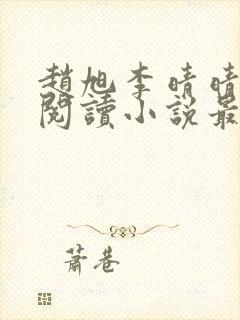 趙旭李晴晴
閱讀小說最
蕭巷